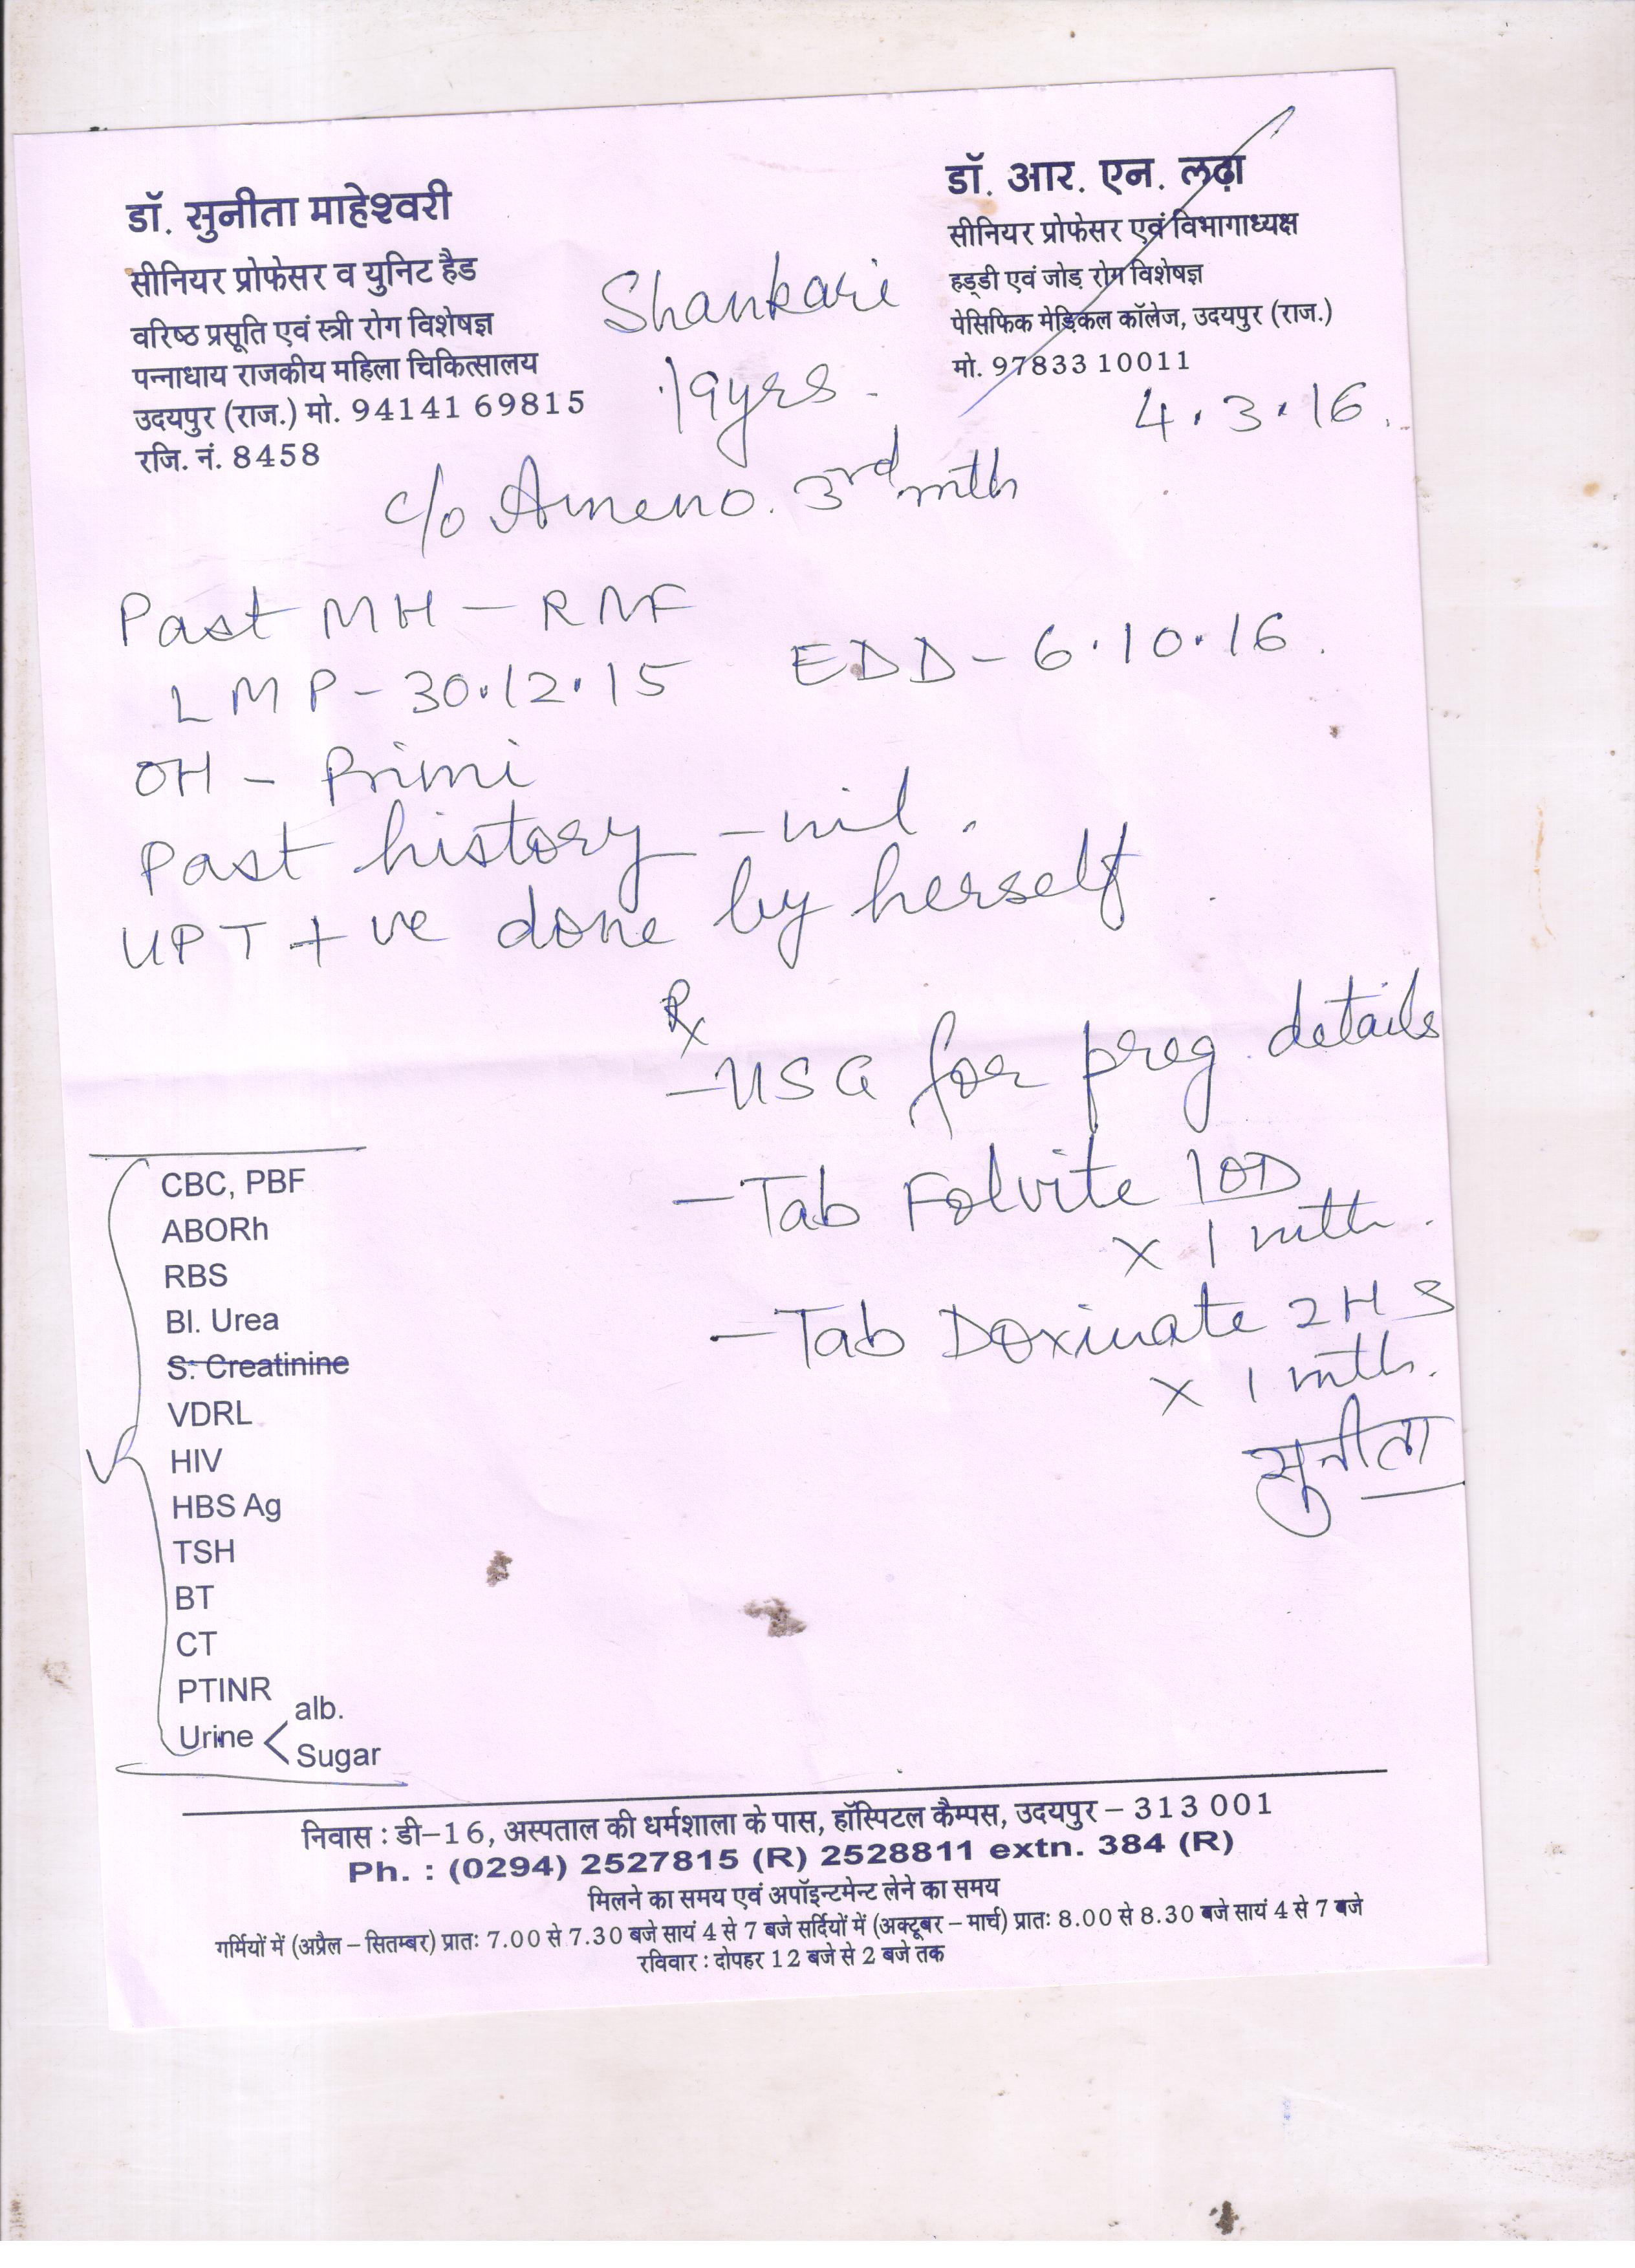 डॉ. सुनीता माहेश्वरी
सीनियर प्रोफेसर व युनिट हैड
वरिष्ठ प्रसूति एवं स्त्री रोग विशेषज्ञ
पन्नाधाय राजकीय महिला चिकित्सालय
उदयपुर (राज.) मो. 94141 69815
रजि. नं. 8458
डॉ. आर. एन. लढ़ा
सीनियर प्रोफेसर एवं विभागाध्यक्ष
हड्डी एवं जोड़ रोग विशेषज्ञ
पेसिफिक मेडिकल कॉलेज, उदयपुर (राज.)
मो. 97833 10011
Shankari
19yrs.
4.3.16.
c/o Ameno. 3rd mth
Past MH - RMF
LMP - 30.12.15 EDD - 6.10.16.
OH - Primi
Past history - nil.
UPT +ve done by herself.
Rx
- USG for preg details
- Tab Folvite 1OD
x 1 mth.
- Tab Doxinate 2HS
x 1 mth.
सुनीता
CBC, PBF
ABORh
RBS
Bl. Urea
S. Creatinine
VDRL
HIV
HBS Ag
TSH
BT
CT
PTINR
Urine < alb.
Sugar
निवास : डी-16, अस्पताल की धर्मशाला के पास, हॉस्पिटल कैम्पस, उदयपुर – 313 001
Ph. : (0294) 2527815 (R) 2528811 extn. 384 (R)
मिलने का समय एवं अपॉइन्टमेन्ट लेने का समय
गर्मियों में (अप्रैल – सितम्बर) प्रातः 7.00 से 7.30 बजे सायं 4 से 7 बजे सर्दियों में (अक्टूबर – मार्च) प्रातः 8.00 से 8.30 बजे सायं 4 से 7 बजे
रविवार : दोपहर 12 बजे से 2 बजे तक